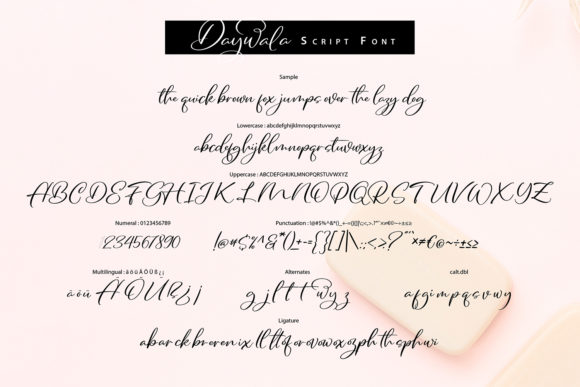 Daywala Script Font
Sample
the quick brown fox jumps over the lazy dog
Lowercase : abcdefghijklmnopqrstuvwxyz
abcdefghijklmnopqrstuvwxyz
Uppercase : ABCDEFGHIJKLMNOPQRSTUVWXYZ
ABCDEFGHIJKLMNOPQRSTUVWXYZ
Numeral : 0123456789
1234567890
Punctuation : !@#$%^&*()_+-={}[]|\:;<,>.?"“˝×≠€©~÷±≤≥
Multilingual : ä ö ü Ä Ö Ü ß ¿ ¡
ä ö ü Ä Ö Ü ß ¿ ¡
Alternates
g j l t t w y z
calt.dbl
a f g i m p q s v w y
Ligature
ab ar ck br or en ix ll tt of or ov ow ox zp ph th sp hw wi